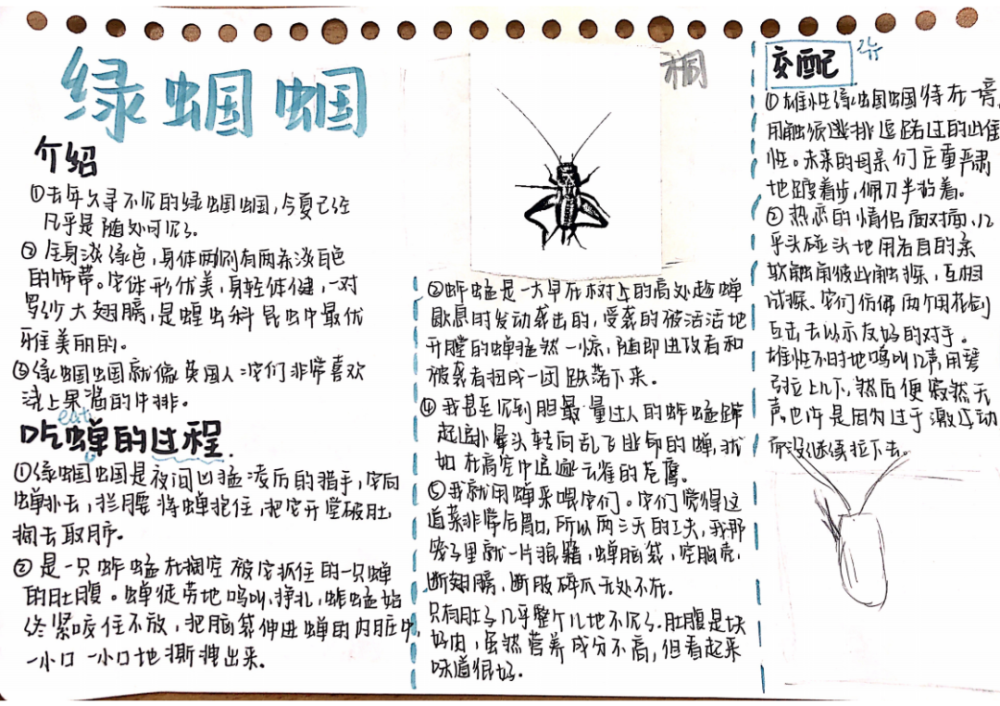 绿蝈蝈
介绍
①去年久寻不沉的绿蝈蝈,今夏已经
几乎是随处可沉了。
②全身淡绿色,身体两侧有两条淡白色
的饰带。它体形优美,身轻体健,一对
罗纱大翅膀,是蝗虫科昆虫中最优
雅美丽的。
③绿蝈蝈就像英国人它们非常喜欢
浇上果酱的牛排。
eat
吃蝉的过程.
①绿蝈蝈是夜间凶猛凌后的猎手,它向
蝉扑去,拦腰将蝉抱住,把它开堂破肚,
掏去取脐。
②是一只蚱蜢在掏空被它抓住的一只蝉
的肚腹。蝉徒劳地鸣叫,挣扎,蚱蜢始
终紧咬住不放,把脑袋伸进蝉的内脏中,
一小口一小口地撕拽出来。
桐
③蚱蜢是一大早在树上的高处趁蝉
歇息时发动袭击的,受袭的被活活地
开膛的蝉猛然一惊,随即进攻者和
被袭者扭成一团跌落下来。
④我甚至沉到胆最量过人的蚱蜢蹿
起追扑晕头转向乱飞逃命的蝉,犹
如在高空中追逐云雀的苍鹰。
⑤我就用蝉来喂它们。它们觉得这
道菜非常后胃口,所以两三天的工夫,我那
笼子里就一片狼籍,蝉脑袋,空胸壳,
断翅膀,断肢碎爪无处不在。
只有肚子几乎整个儿地不沉了.肚腹是块
好肉,虽然营养成分不高,但看起来
味道很好。
交配
①雄性绿蝈蝈待在一旁,
用触须挑逗路过的雌
性。未来的母亲们庄重严肃
地踱着步,佩刀半抬着。
②热恋的情侣面对面,几
乎头碰头地用各自的柔
软触角彼此触探,互相
试探。它们仿佛两个用花剑
互击去以示友好的对手。
雄性不时地鸣叫几声,用琴
弓拉上几下,然后便寂然无
声,也许是因为过于激动
而没继续拉下去。